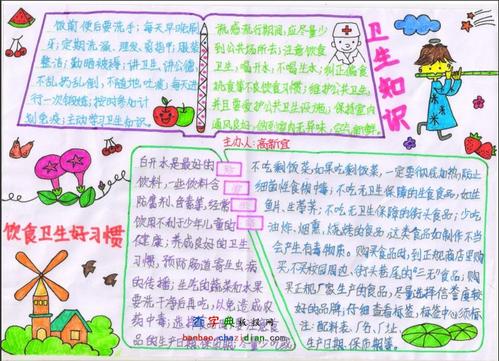 饭前便后要洗手；每天早晚刷
牙；定期洗澡、理发、剪指甲、服装
整洁；勤晒被褥；讲卫生、讲公德
不乱扔乱倒，不随地吐痰；每年进
行一次体检；按时参加计
划免疫；主动学习卫生知识。
流感流行期间，应尽量少
到公共场所去；注意饮食
卫生，喝开水，不喝生水；纠正偏食
挑食等不良饮食习惯；维护公共卫生
并且要爱护公共卫生设施；保持室内
通风良好
卫生知识
主办人：高新宜
饮食卫生好习惯
白开水是最好的
饮料，一些饮料含
防腐剂、色素等，经常
饮用不利于少年儿童的
健康；养成良好的卫生
习惯，预防肠道寄生虫病
的传播；生吃的蔬菜和水果
要洗干净后再吃，以免造成农
药中毒；选择
品的生产日期、保质日期
不吃剩饭菜，如果吃剩饭菜，一定要彻底加热，防止
细菌性食物中毒；不吃无卫生保障的生食食品，如生
鱼片、生荠芥；不吃无卫生保障的街头食品；少吃
油炸、烟熏、烧烤的食品，这类食品如制作不当
会产生有毒物质。购买食品时，到正规商店里购
买，不买校园周边、街头巷尾的“三无”食品；购
买正规厂家生产的食品，尽量选择信誉度较
好的品牌；仔细查看标签，标签中必须标
注：配料表、厂名、厂址、
生产日期、保质期等。
查字典 板报网
banbao.chazidian.com